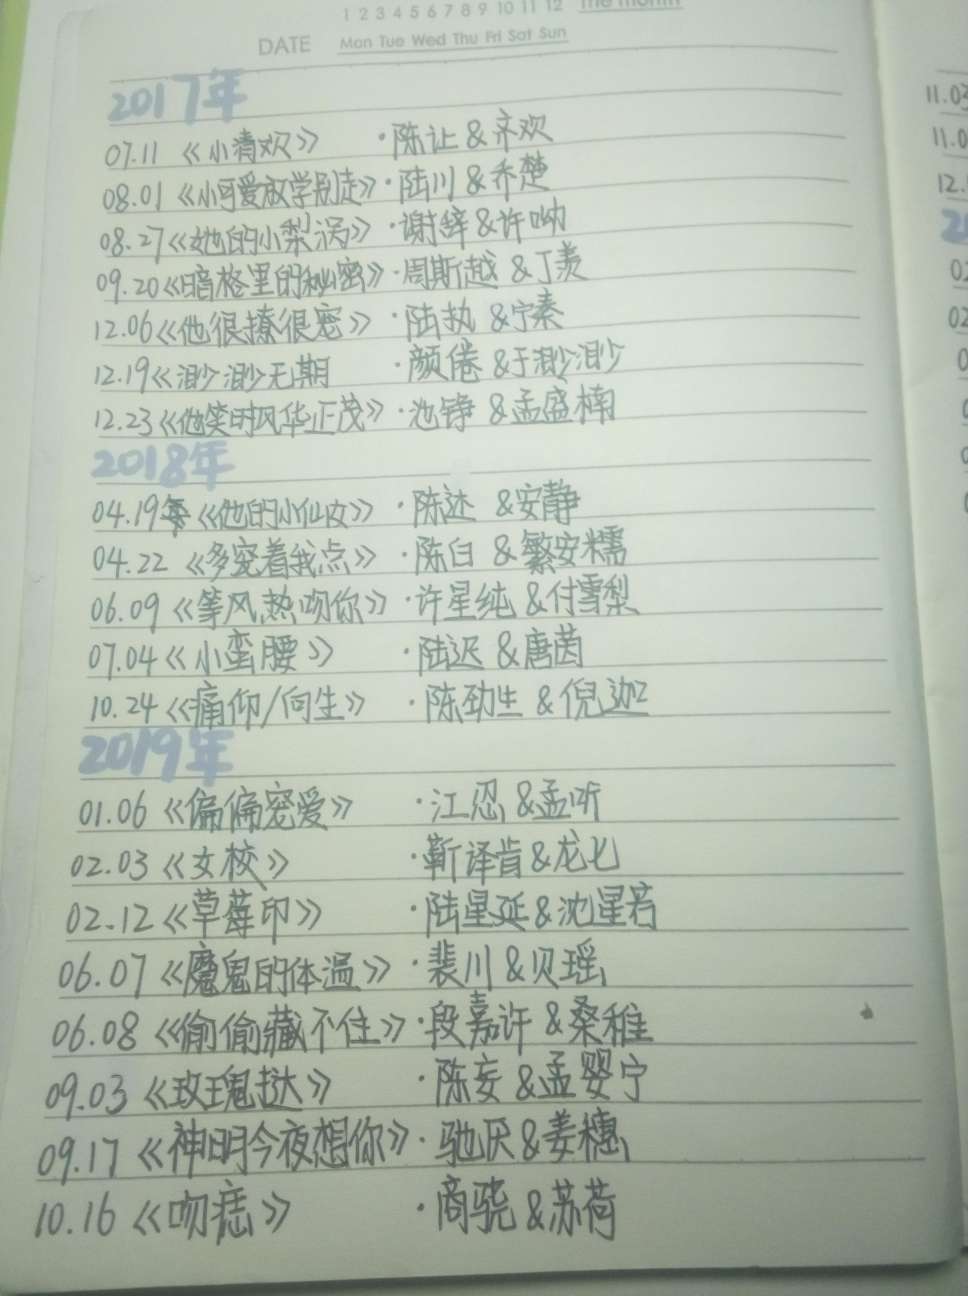 1 2 3 4 5 6 7 8 9 10 11 12 The month
DATE Mon Tue Wed Thu Fri Sat Sun
2017年
07.11《小清欢》 ·陈让&齐欢
08.01《小可爱放学别走》·陆川&乔楚
08.27《她的小梨涡》·谢辞&许呦
09.20《暗格里的秘密》·周斯越&丁羡
12.06《他很撩很宠》·陆执&宁蓁
12.19《渺渺无期 ·颜倦&于渺渺
12.23《他笑时风华正茂》·池铮&孟盛楠
2018年
04.19 《他的小仙女》·陈述&安静
04.22《多宠着我点》·陈白&繁安糯
06.09《等风热吻你》·许星纯&付雪梨
07.04《小蛮腰》 ·陆迟&唐茵
10.24《痛仰/向生》·陈劲生&倪迦
2019年
01.06《偏偏宠爱》 ·江忍&孟听
02.03《女校》 ·靳译肯&龙七
02.12《草莓印》 ·陆星延&沈星若
06.07《魔鬼的体温》·裴川&贝瑶
06.08《偷偷藏不住》·段嘉许&桑稚
09.03《玫瑰挞》 ·陈妄&孟婴宁
09.17《神明今夜想你》·驰厌&姜穗
10.16《吻痣》 ·商骁&苏荷
11.0
12.
02